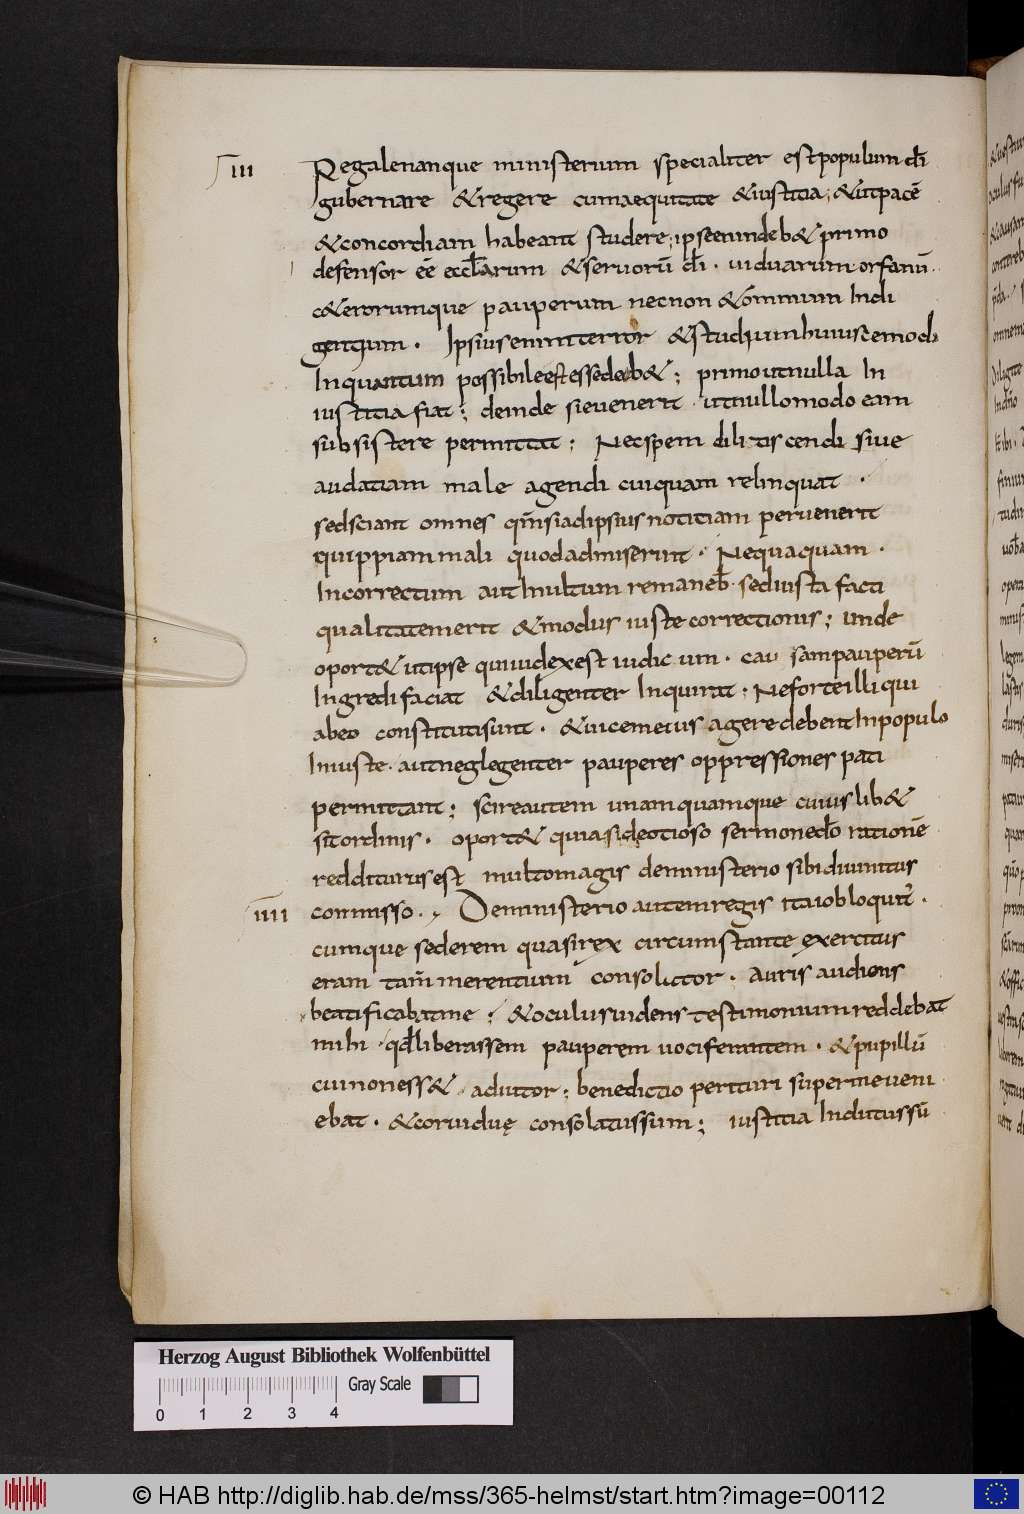 III Regale nanque ministerium specialiter est populum dī
gubernare & regere cum aequitate & iustitia; & ut pacē
& concordiam habeant studere; ipse enim deb& primo
defensor eē eccl̄arum & seruorū dī · uiduarum orfanū ·
c&erorumque pauperum nec non & omnium Indi
gentium · Ipsius enim terror & studium huiuscemodi
In quantum possibile est esse deb&; primo ut nulla In
iustitia fiat; deinde si euenerit · ut nullo modo eam
subsistere permittat; Nec spem dilitiscendi siue
audatiam male agendi cuiquam relinquat ·
sed sciant omnes qm̄ si ad ipsius notitiam peruenerit
quippiam mali quod admiserint · Nequaquam ·
Incorrectum aut Inultum remaneb̄ · sed iusta facti
qualitatem erit & modus iuste correctionis; unde
oport& ut ipse qui iudex est iudicum · cau sam pauperū
Ingredi faciat & diligenter Inquirat; Ne forte illi qui
ab eo constituti sunt · & uicem eius agere debent In populo
Iniuste · aut neglegenter pauperes oppressiones pati
permittant; scire autem unamquamque cuius lib&
sit ordinis · oport& quia si de otioso sermone dō rationē
redditurus est multo magis de ministerio sibi diuinitus
IIII commisso · De ministerio autem regis ita iob loquit̄ ·
cumque sederem quasi rex circumstante exercitus
eram tam̄ merentium consolictor · Auris audiens
beatificabat me; & oculus uidens testimonium reddebat
mihi · qd̄ liberassem pauperem uociferantem · & pupillū
cui non ess& · adiutor; benedictio perituri super me ueni
ebat · & cor uiduę consolatus sum; iustitia Indutus sū
Herzog August Bibliothek Wolfenbüttel
Gray Scale
0 1 2 3 4
© HAB http://diglib.hab.de/mss/365-helmst/start.htm?image=00112